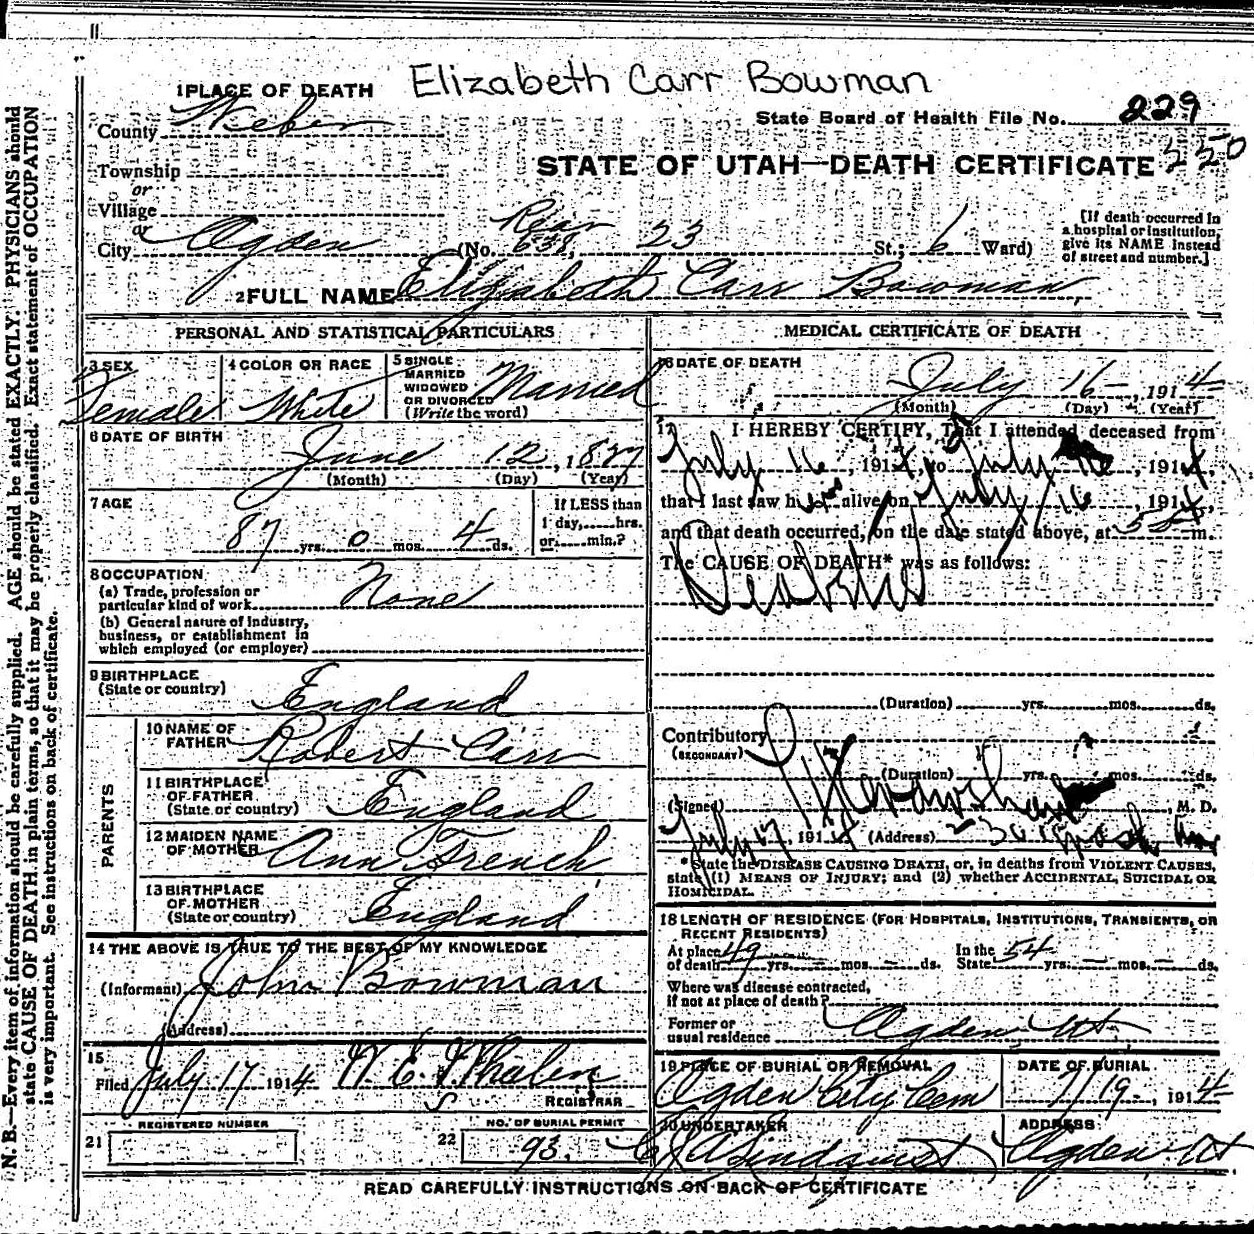 Elizabeth Carr Bowman
1 PLACE OF DEATH
County Weber
State Board of Health File No. 229
STATE OF UTAH—DEATH CERTIFICATE 550
Township
or
Village
or
City Ogden (No. Rear 638, 23 St.; 6 Ward)
[If death occurred in
a hospital or institution,
give its NAME instead
of street and number.]
2 FULL NAME Elizabeth Carr Bowman
PERSONAL AND STATISTICAL PARTICULARS
3 SEX
Female
4 COLOR OR RACE
White
5 SINGLE
MARRIED
WIDOWED
OR DIVORCED
(Write the word)
Married
6 DATE OF BIRTH
June 12, 1827
(Month) (Day) (Year)
7 AGE
87 yrs. 0 mos. 4 ds.
If LESS than
1 day,......hrs.
or......min.?
8 OCCUPATION
(a) Trade, profession or
particular kind of work None
(b) General nature of industry,
business, or establishment in
which employed (or employer)
9 BIRTHPLACE
(State or country) England
PARENTS
10 NAME OF
FATHER Robert Carr
11 BIRTHPLACE
OF FATHER
(State or country) England
12 MAIDEN NAME
OF MOTHER Ann French
13 BIRTHPLACE
OF MOTHER
(State or country) England
14 THE ABOVE IS TRUE TO THE BEST OF MY KNOWLEDGE
(Informant) John Bowman
(Address)
15
Filed July 17 1914 W. E. Whalen
REGISTRAR
REGISTERED NUMBER
21
NO. OF BURIAL PERMIT
22 93.
MEDICAL CERTIFICATE OF DEATH
16 DATE OF DEATH
July 16, 1914
(Month) (Day) (Year)
17 I HEREBY CERTIFY, That I attended deceased from
July 16, 1914, to July 16, 1914,
that I last saw her alive on July 16, 1914,
and that death occurred, on the date stated above, at m.
The CAUSE OF DEATH* was as follows:
(Duration) yrs. mos. ds.
Contributory
(SECONDARY)
(Duration) yrs. mos. ds.
(Signed) , M. D.
July 17, 1914 (Address)
*State the DISEASE CAUSING DEATH, or, in deaths from VIOLENT CAUSES,
state (1) MEANS OF INJURY; and (2) whether ACCIDENTAL, SUICIDAL OR
HOMICIDAL.
18 LENGTH OF RESIDENCE (FOR HOSPITALS, INSTITUTIONS, TRANSIENTS, OR
RECENT RESIDENTS)
At place
of death 49 yrs. – mos. – ds.
In the
State 54 yrs. – mos. – ds.
Where was disease contracted,
if not at place of death?
Former or
usual residence Ogden, Ut.
19 PLACE OF BURIAL OR REMOVAL
Ogden City Cem
DATE OF BURIAL
7/19, 1914
20 UNDERTAKER
Lindquist
ADDRESS
Ogden Ut
READ CAREFULLY INSTRUCTIONS ON BACK OF CERTIFICATE
N. B.—Every item of information should be carefully supplied. AGE should be stated EXACTLY. PHYSICIANS should
state CAUSE OF DEATH in plain terms, so that it may be properly classified. Exact statement of OCCUPATION
is very important. See instructions on back of certificate.